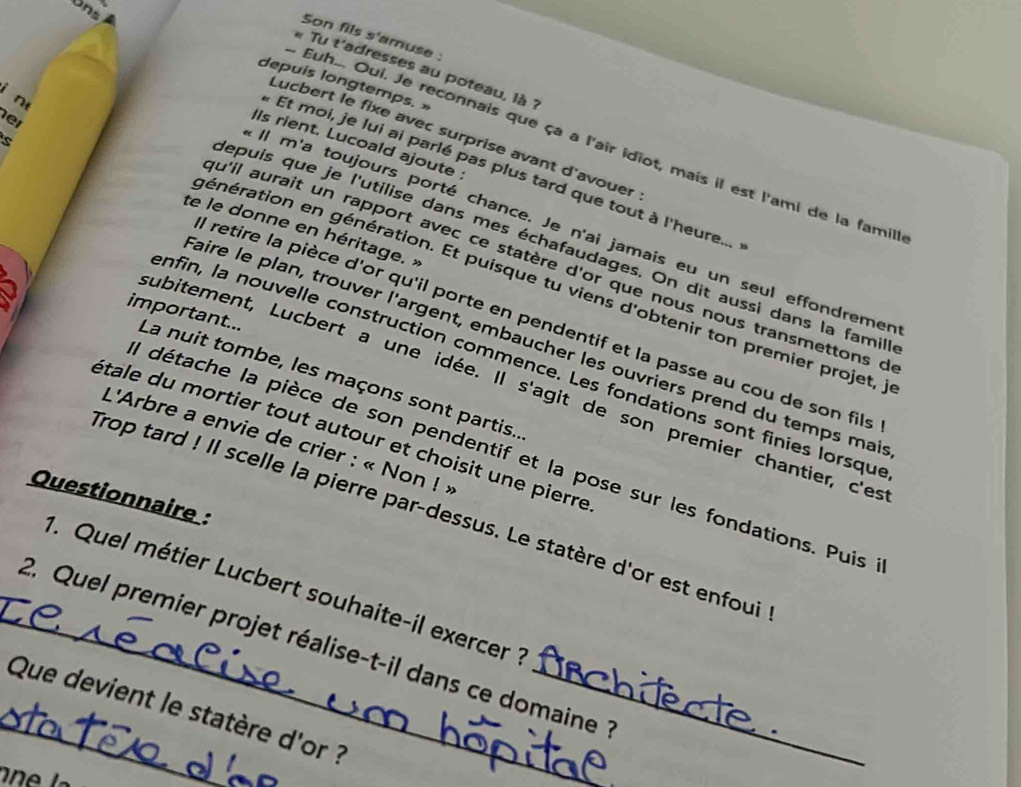 Son fils s'amuse :
« Tu t'adresses au poteau, là ?
– Euh... Oui. Je reconnais que ça a l'air idiot, mais il est l'ami de la famille
depuis longtemps. »
Lucbert le fixe avec surprise avant d'avouer :
« Et moi, je lui ai parlé pas plus tard que tout à l'heure... »
Ils rient. Lucoald ajoute :
« Il m'a toujours porté chance. Je n'ai jamais eu un seul effondrement
depuis que je l'utilise dans mes échafaudages. On dit aussi dans la famille
qu'il aurait un rapport avec ce statère d'or que nous nous transmettons de
génération en génération. Et puisque tu viens d'obtenir ton premier projet, je
te le donne en héritage. »
Il retire la pièce d'or qu'il porte en pendentif et la passe au cou de son fils !
Faire le plan, trouver l'argent, embaucher les ouvriers prend du temps mais,
enfin, la nouvelle construction commence. Les fondations sont finies lorsque,
subitement, Lucbert a une idée. Il s'agit de son premier chantier, c'est
important...
La nuit tombe, les maçons sont partis...
Il détache la pièce de son pendentif et la pose sur les fondations. Puis il
étale du mortier tout autour et choisit une pierre.
L'Arbre a envie de crier : « Non ! »
Trop tard ! Il scelle la pierre par-dessus. Le statère d'or est enfoui !
Questionnaire :
1. Quel métier Lucbert souhaite-il exercer ? Architecte.
2. Quel premier projet réalise-t-il dans ce domaine ?
réalise um hôpital
Que devient le statère d'or ?
statère d'or